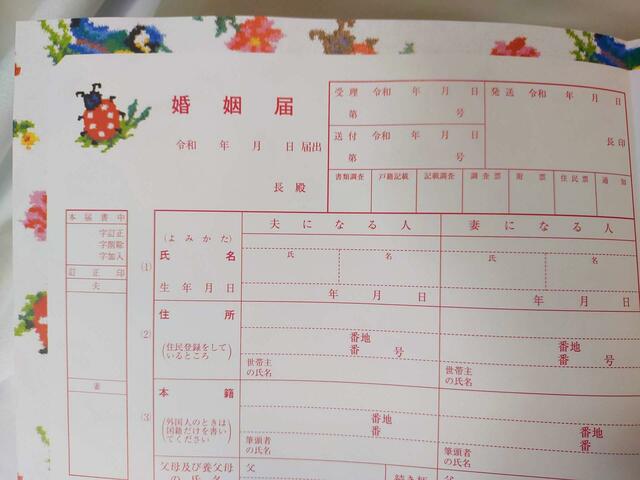 婚姻届
令和 年 月 日 届出
長 殿
受理 令和 年 月 日
第 号
送付 令和 年 月 日
第 号
発送 令和 年 月 日
長印
書類調査 戸籍記載 記載調査 調査票 附票 住民票 通知
本届書中
字訂正
字削除
字加入
訂正印
夫
妻
夫になる人 妻になる人
(1)
(よみかた)
氏名
氏 名 氏 名
生年月日 年 月 日 年 月 日
(2)
住所
(住民登録をしているところ)
番地 番地
番 号 番 号
世帯主の氏名 世帯主の氏名
(3)
本籍
(外国人のときは国籍だけを書いてください)
番地 番地
番 番
筆頭者の氏名 筆頭者の氏名
父母及び養父母
の氏名
父 続き柄 父